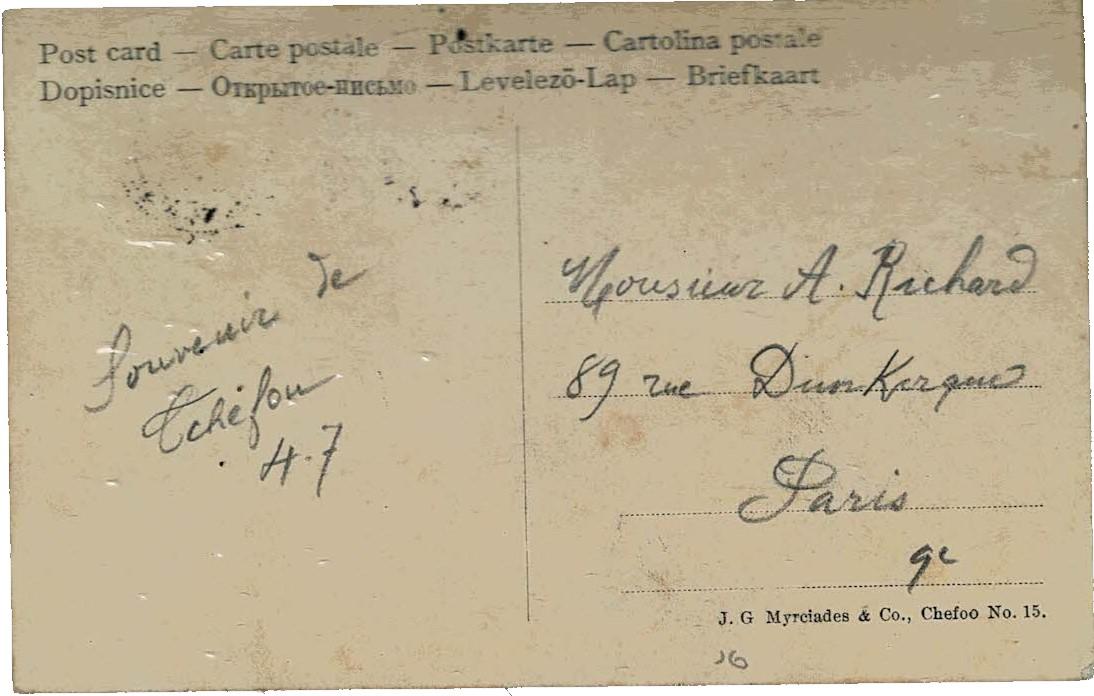 Post card — Carte postale — Postkarte — Cartolina postale
Dopisnice — Открытое-письмо — Levelező-Lap — Briefkaart
Souvenir de
Tchéfou
4.7
Monsieur A. Richard
89 rue Dunkerque
Paris
9e
J. G Myrciades & Co., Chefoo No. 15.